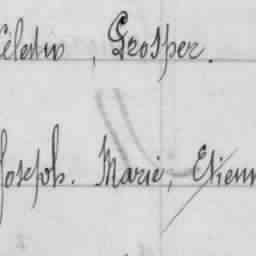 Célestin, Prosper.
Joseph. Marie, Etienn